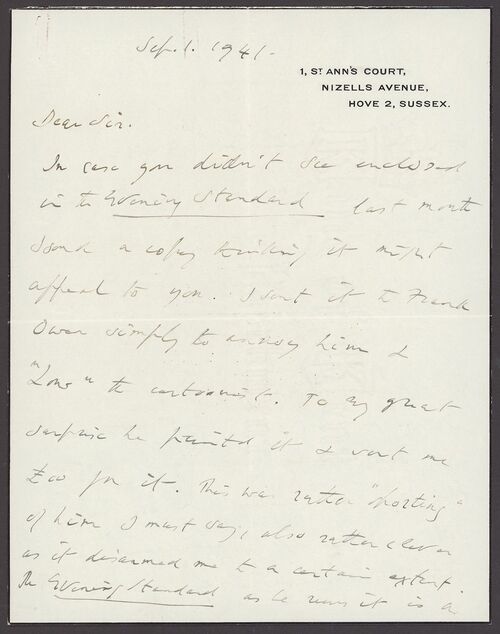 Sep. 1. 1941.
1, ST ANN'S COURT,
NIZELLS AVENUE,
HOVE 2, SUSSEX.
Dear Sir.
In case you didn't see enclosed
in the Evening Standard last month
I send a copy thinking it might
appeal to you. I sent it to Frank
Owen simply to annoy him &
"Low" the cartoonist. To my great
surprise he printed it & sent me
for it. This was rather "sporting"
of him I must say, also rather clever
as it disarmed me to a certain extent.
The Evening Standard as he runs it is a